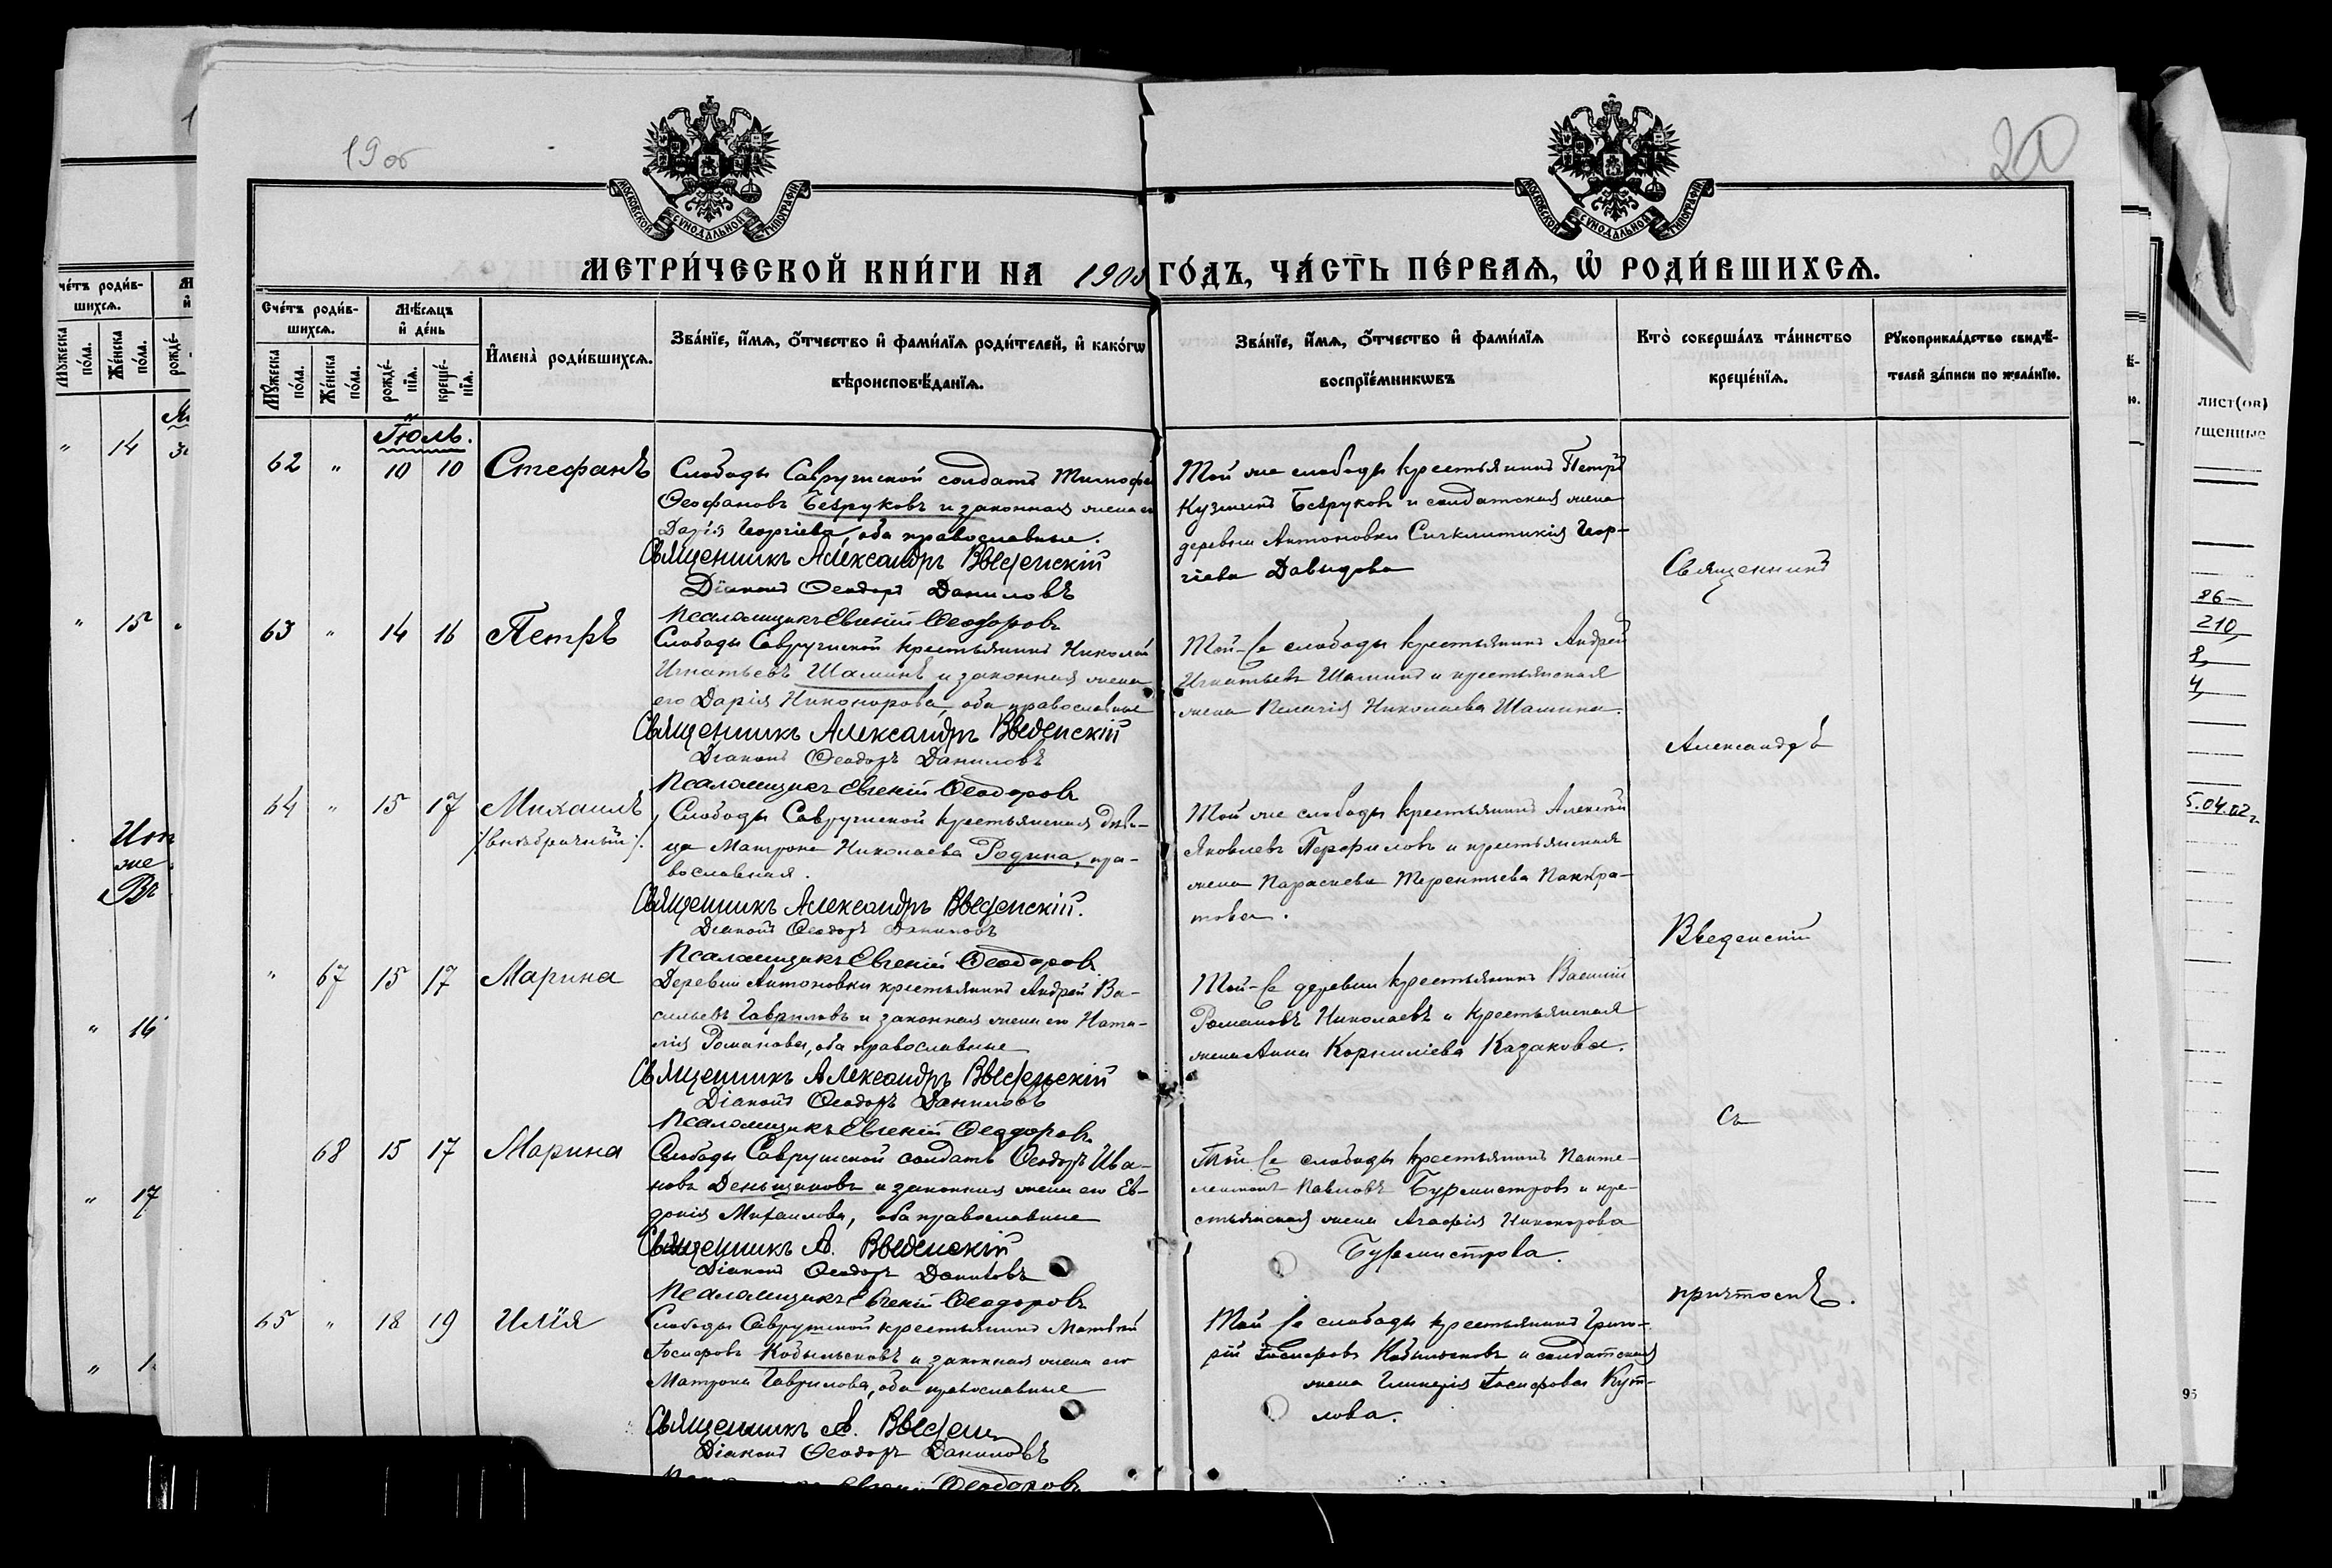 1906
20
МОСКОВСКОЙ СѴНОДАЛЬНОЙ ТИПОГРАФІИ
МОСКОВСКОЙ СѴНОДАЛЬНОЙ ТИПОГРАФІИ
МЕТРИ́ЧЕСКОЙ КНИ́ГИ НА 1905 ГО́ДЪ, ЧА́СТЬ ПЕ́РВАѦ, Ѡ҆ РОДИ́ВШИХСѦ.
Сче́тъ роди́в-
шихсѧ.
Мѣ́сѧцъ
и҆ де́нь
Мꙋ́жеска по́ла.
Же́нска по́ла.
рожде́-
нїѧ.
креще́-
нїѧ.
И҆мена̀ роди́вшихсѧ.
Зва́нїе, и҆́мѧ, ѻ҆́тчество и҆ фами́лїѧ роди́телей, и҆ како́гѡ
вѣроисповѣ́данїѧ.
Зва́нїе, и҆́мѧ, ѻ҆́тчество и҆ фами́лїѧ
воспрїе́мникѡвъ
Кто̀ соверша́лъ та́инство
креще́нїѧ.
Рꙋкоприкла́дство свидѣ́-
телей за́писи по жела́нїю.
Іюль.
62 " 10 10 Стефанъ
Слободы Саврушской солдатъ Тимофей
Ѳеофановъ Безруковъ и законная жена его
Дарія Георгіева, оба православные.
Священникъ Александръ Введенскій
Діаконъ Ѳеодоръ Даниловъ
Псаломщикъ Евгеній Ѳеодоровъ
Той же слободы крестьянинъ Петръ
Кузминъ Безруковъ и солдатская жена
деревни Антоновки Синклитикія Геор-
гіева Давыдова
Священникъ
63 " 14 16 Петръ
Слободы Саврушской крестьянинъ Николай
Игнатьевъ Шаминъ и законная жена
его Дарія Никонорова, оба православные
Священникъ Александръ Введенскій
Діаконъ Ѳеодоръ Даниловъ
Псаломщикъ Евгеній Ѳеодоровъ
Той-же слободы крестьянинъ Андрей
Игнатьевъ Шаминъ и крестьянская
жена Пелагія Николаева Шамина.
Александръ
64 " 15 17 Михаилъ
/внѣбрачный/.
Слободы Саврушской крестьянская дѣви-
ца Матрона Николаева Родина, пра-
вославная.
Священникъ Александръ Введенскій.
Діаконъ Ѳеодоръ Даниловъ
Псаломщикъ Евгеній Ѳеодоровъ
Той же слободы крестьянинъ Алексѣй
Яковлевъ Перфиловъ и крестьянская
жена Параскева Терентьева Панкра-
това.
Введенскій
" 67 15 17 Марина
Деревни Антоновки крестьянинъ Андрей Ва-
сильевъ Гавриловъ и законная жена его Ната-
лія Романова, оба православные
Священникъ Александръ Введенскій
Діаконъ Ѳеодоръ Даниловъ
Псаломщикъ Евгеній Ѳеодоровъ
Той-же деревни крестьянинъ Василій
Романовъ Николаевъ и крестьянская
жена Анна Корниліева Казакова.
Съ
68 15 17 Марина
Слободы Саврушской солдатъ Ѳеодоръ Ива-
новъ Деньщиковъ и законная жена его Ев-
докія Михаилова, оба православные
Священникъ А. Введенскій
Діаконъ Ѳеодоръ Даниловъ
Псаломщикъ Евгеній Ѳеодоровъ
Той же слободы крестьянинъ Панте-
леимонъ Павловъ Бурмистровъ и кре-
стьянская жена Агафія Никонорова
Бурмистрова.
причтомъ.
65 " 18 19 Илія
Слободы Саврушской крестьянинъ Матвѣй
Іосифовъ Кобыльсковъ и законная жена его
Матрона Гаврилова, оба православные
Священникъ А. Введен
Діаконъ Ѳеодоръ Даниловъ
Евгеній Ѳеодоровъ
Той же слободы крестьянинъ Григо-
рій Іосифовъ Кобыльсковъ и солдатская
жена Гликерія Іосифова Кут-
лова.
14
15
16
17
лист(ов)
86
210
8
4
5.04.02 г.
95